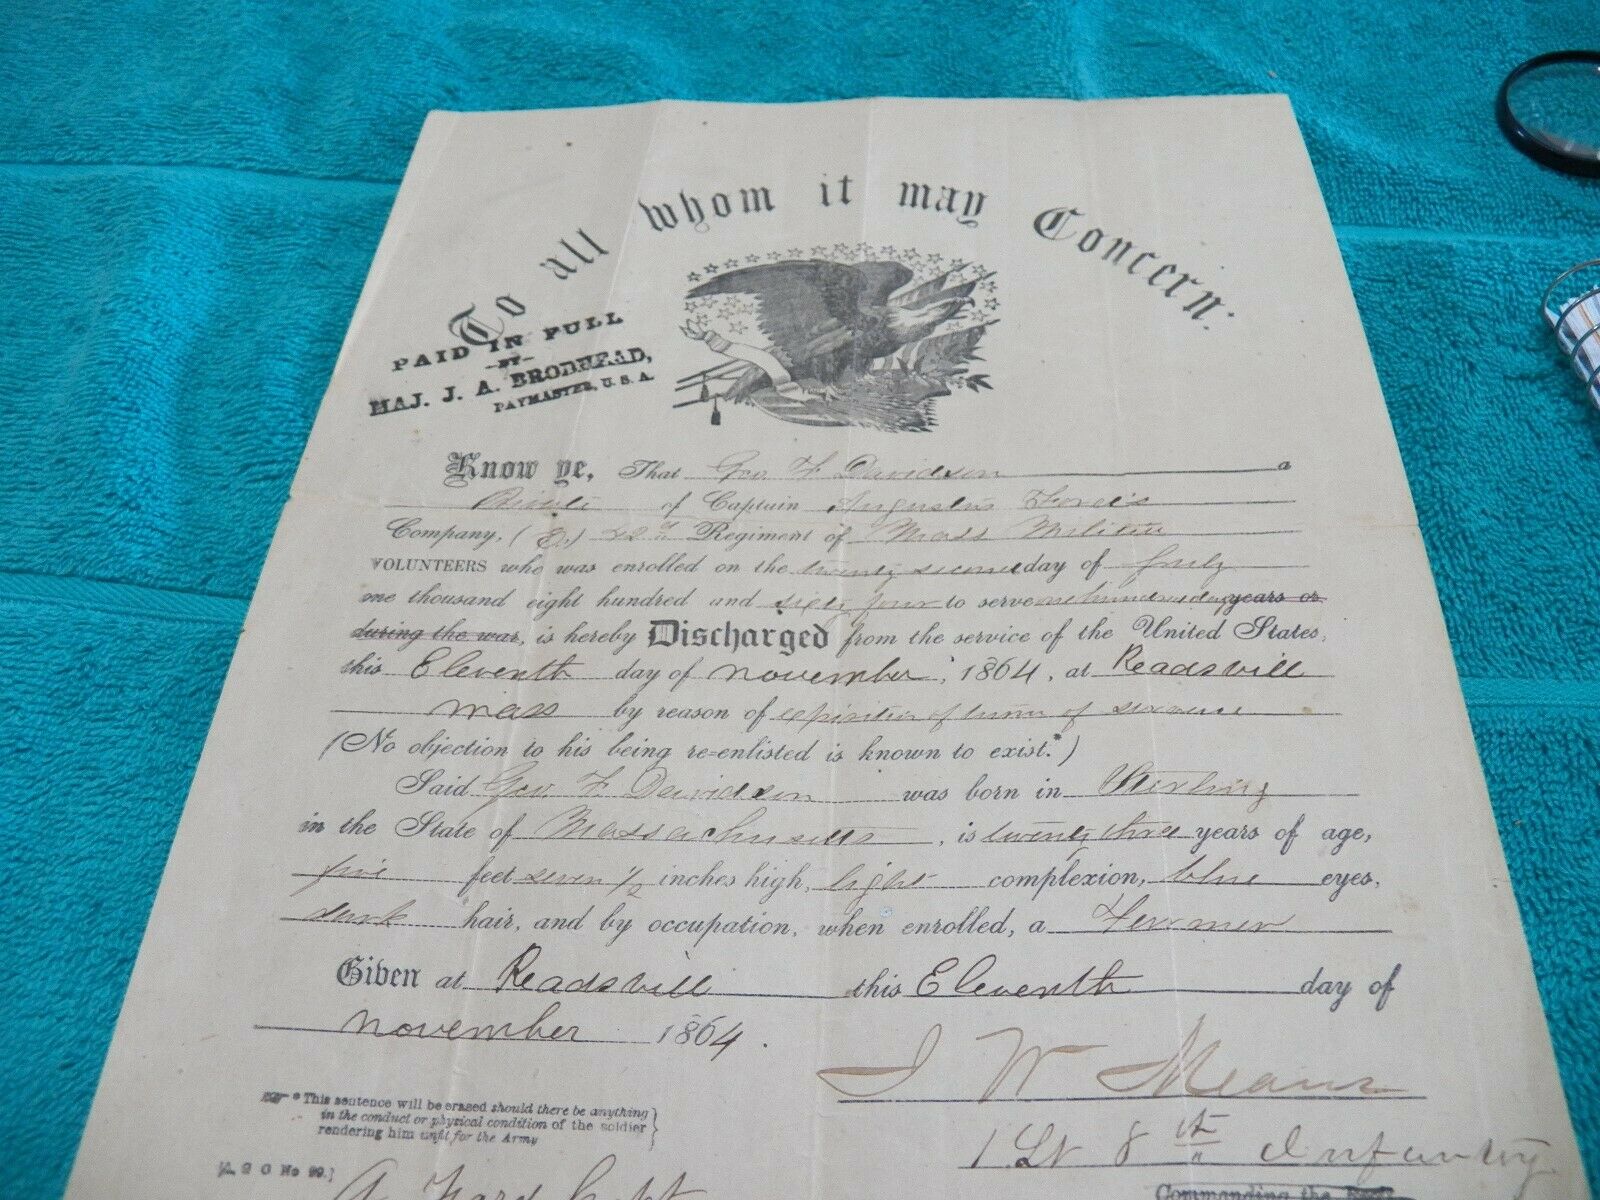 To all whom it may Concern:
PAID IN FULL
-BY-
MAJ. J. A. BRODHEAD,
PAYMASTER, U. S. A.
Know ye, That Geo F Davidson a
Private of Captain Augustus Ford's
Company, (E.) 42d Regiment of Mass Militia
VOLUNTEERS who was enrolled on the twenty second day of July
one thousand eight hundred and sixty four to serve one hundred days years or
during the war, is hereby Discharged from the service of the United States,
this Eleventh day of November, 1864, at Readsvill
Mass by reason of expiration of term of service
(No objection to his being re-enlisted is known to exist.*)
Said Geo F Davidson was born in Sterling
in the State of Massachusetts, is twenty three years of age,
five feet seven 1/2 inches high, light complexion, blue eyes,
dark hair, and by occupation, when enrolled, a Farmer
Given at Readsvill this Eleventh day of
November 1864.
J W Means
1 Lt 8th Infantry
Commanding the
* This sentence will be erased should there be anything
in the conduct or physical condition of the soldier
rendering him unfit for the Army
[A. G. O. No 99.]
A Ford Capt